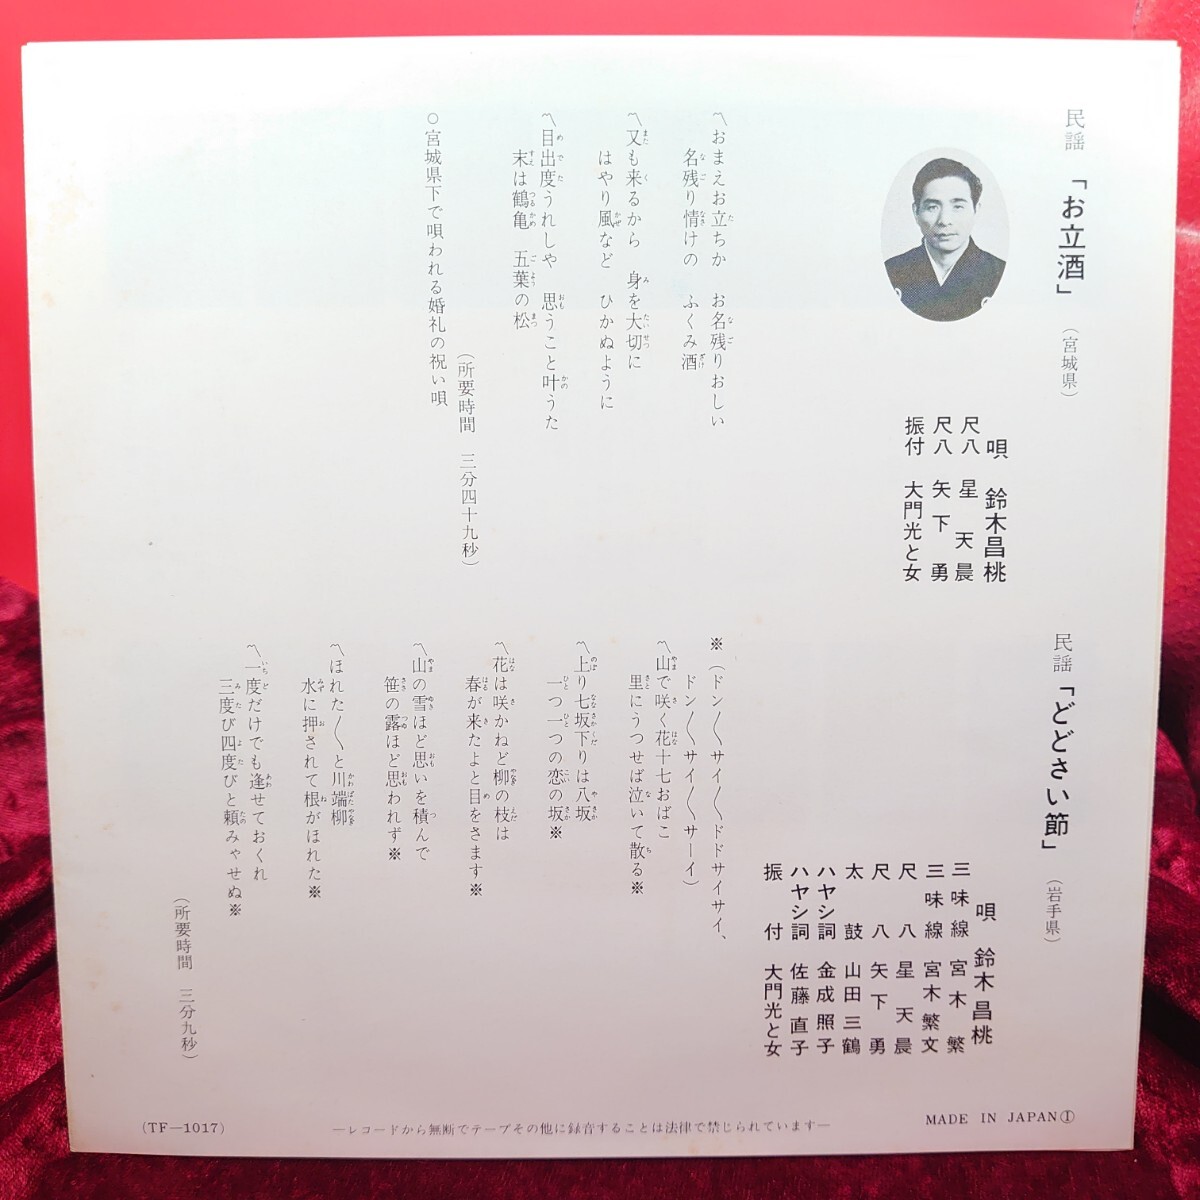 民謡「お立酒」（宮城県）
唄 鈴木昌桃
尺八 星天晨
尺八 矢下勇
振付 大門光と女
〽おまえお立ちか お名残りおしい
名残り情けの ふくみ酒
〽又も来るから 身を大切に
はやり風など ひかぬように
〽目出度うれしや 思うこと叶うた
末は鶴亀 五葉の松
（所要時間 三分四十九秒）
○宮城県下で唄われる婚礼の祝い唄
民謡「どどさい節」（岩手県）
唄 鈴木昌桃
三味線 宮木繁
三味線 宮木繁文
尺八 星天晨
尺八 矢下勇
太鼓 山田三鶴
ハヤシ詞 金成照子
ハヤシ詞 佐藤直子
振付 大門光と女
※（ドン〳〵サイ〳〵ドドサイサイ、
ドン〳〵サイ〳〵サーイ）
〽山で咲く花十七おばこ
里にうつせば泣いて散る※
〽上り七坂下りは八坂
一つ一つの恋の坂※
〽花は咲かねど柳の枝は
春が来たよと目をさます※
〽山の雪ほど思いを積んで
笹の露ほど思われず※
〽ほれた〳〵と川端柳
水に押されて根がほれた※
〽一度だけでも逢せておくれ
三度び四度びと頼みゃせぬ※
（所要時間 三分九秒）
(TF－1017)
―レコードから無断でテープその他に録音することは法律で禁じられています―
MADE IN JAPANⒾ